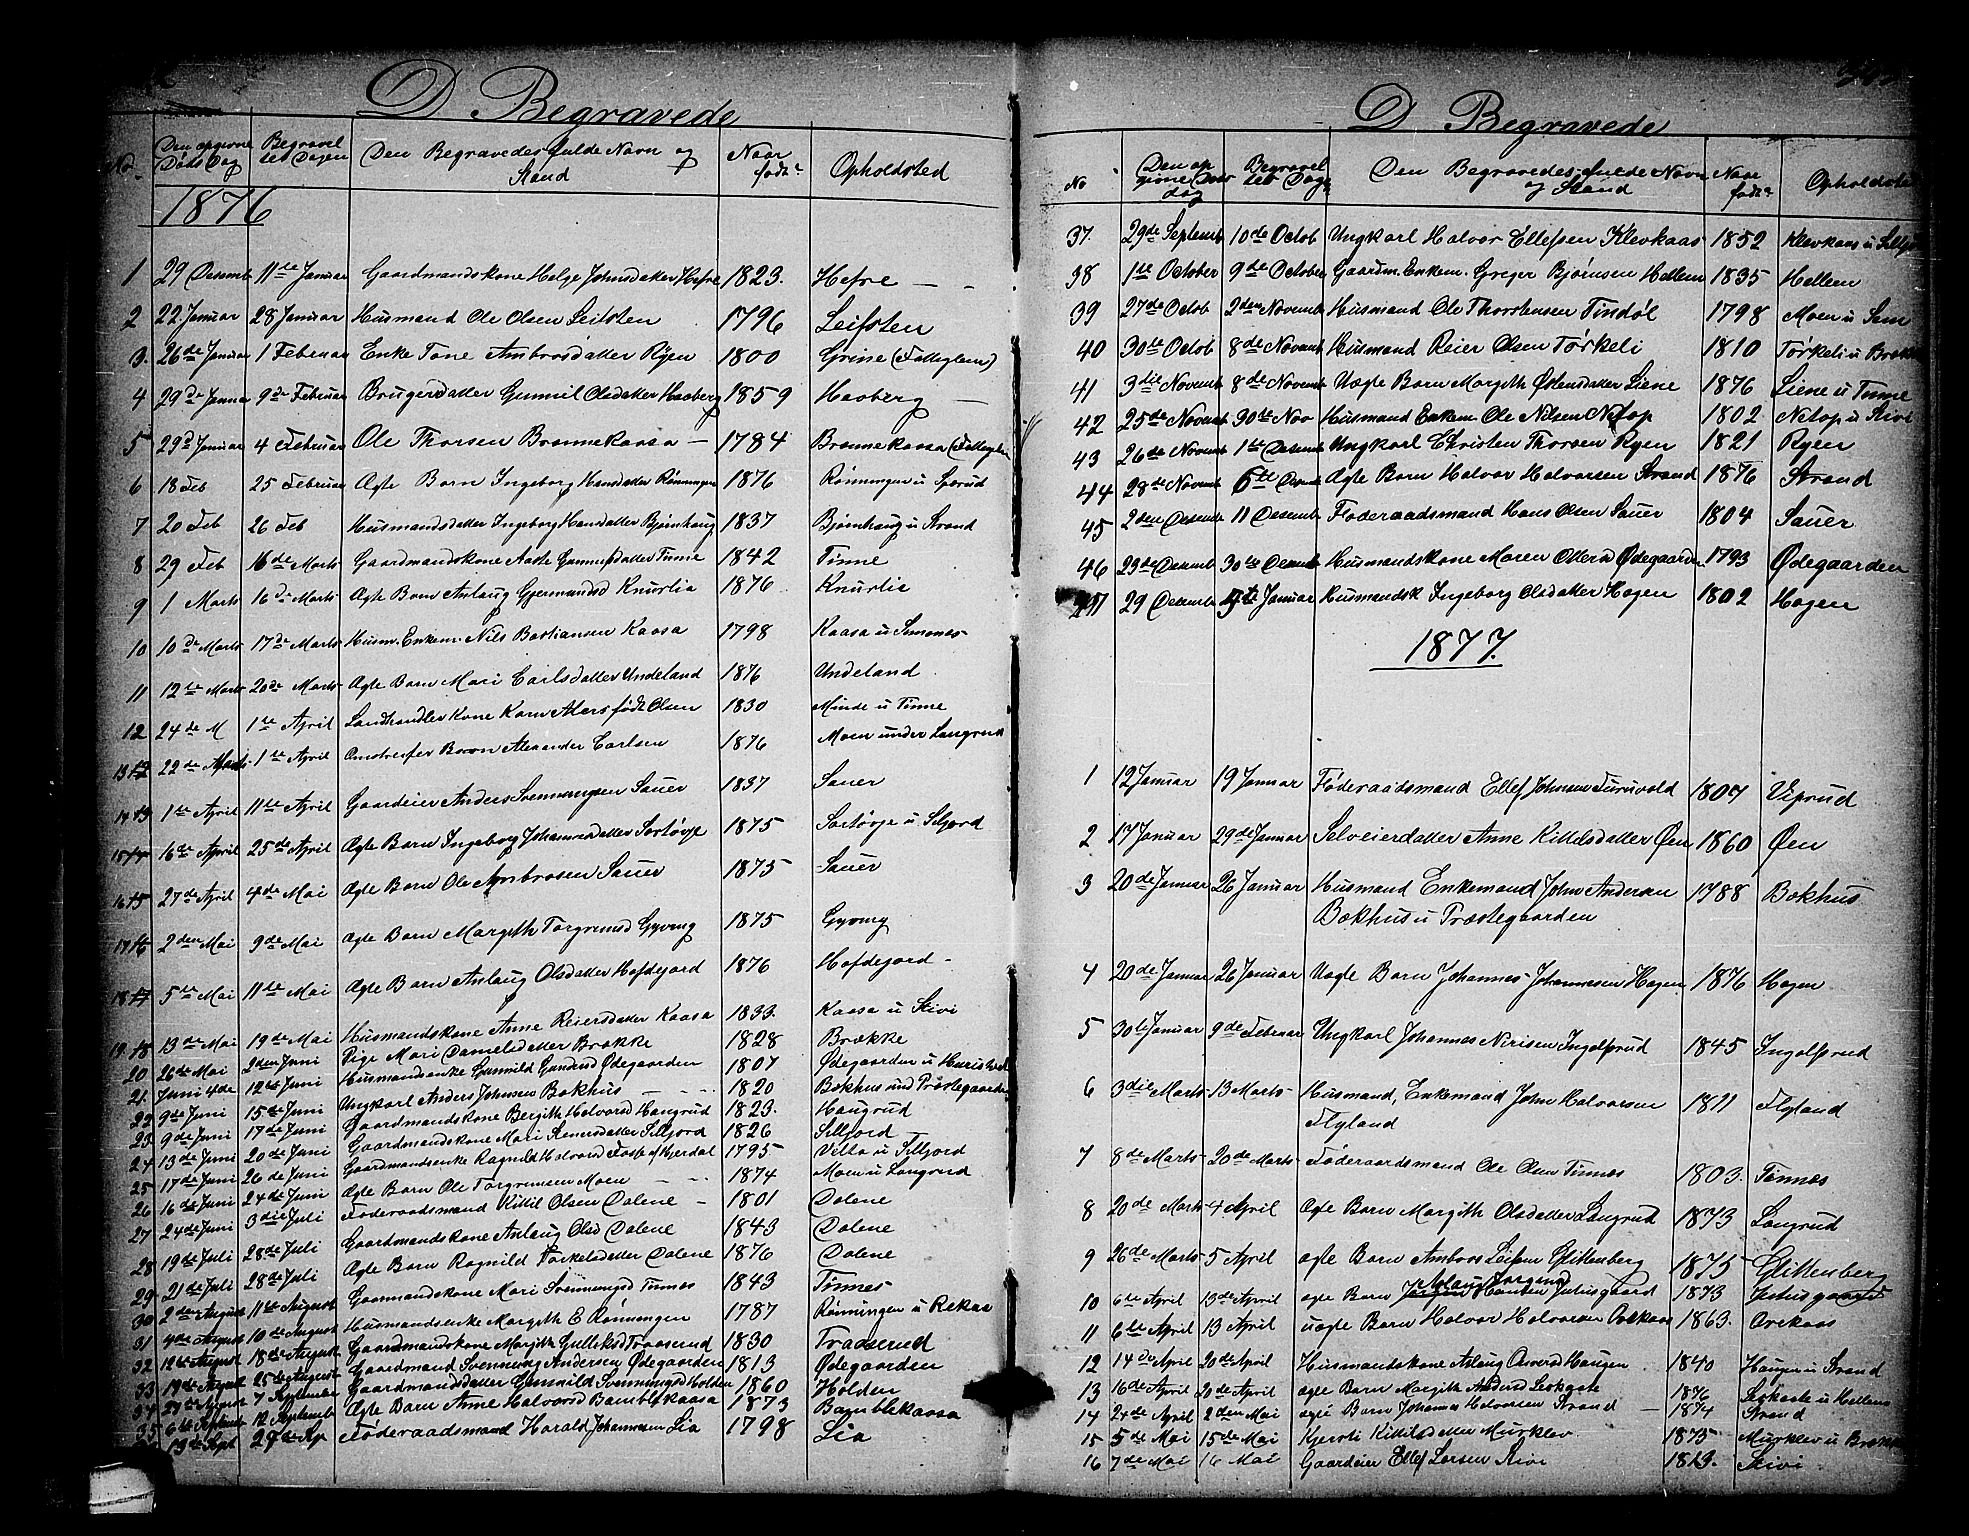 D Begravede
No. Den opgivne Døds Dag Begravelses Dagen Den Begravedes fulde Navn og Stand Naar født Opholdsted
1876
1 29 Decemb 11te Januar Gaardmandskone Helge Johnsdatter Hefre 1823. Hefre
2 22 Januar 28 Januar Husmand Ole Olsen Leifsten 1796 Leifsten
3 26de Januar 1 Februar Enke Tone Ambrosdatter Ryen 1800 Grine (Fattiglem)
4 29de Januar 9de Februar Brugerdatter Gunnil Olsdatter Haoberg 1859 Haoberg
5 29d Januar 4 Februar Ole Thorsen Brønnekaasa 1784 Brønnekaasa
6 18 Feb 25 Februar Ægte Barn Ingeborg Hansdatter Rønningen 1876 Rønningen u
7 20 Feb 26 Feb Husmandsdatter Ingeborg Hansdatter Bjørnhaug 1837 Bjørnhaug u Strand
8 29 Feb 16de Marts Gaardmandskone Aaste Gunnersdatter Tinne 1842 Tinne
9 1 Marts 16d Marts Ægte Barn Aslaug Gjermundsd Knurlia 1876 Knurlia
10 10de Marts 17de Marts Husm. Enkem. Nils Bastiansen Kaasa 1798 Kaasa u
11 12te Marts 20de Marts Ægte Barn Mari Carlsdatter Undeland 1876 Undeland
12 24de M 1te April Landhandler Kone Karn født Olsen 1830 Minde u Tinne
13 22de Marts 1te April Omstreifer Barn Alexander Carlsen 1876 Moen under Langrud
14 1te April 11te April Gaardeier Anders Svennungsen Sauer 1837 Sauer
15 16de April 25de April Ægte Barn Ingeborg Johannesdatter 1875
16 27de April 4de Mai Ægte Barn Ole Ambrosen Sauer 1875 Sauer
17 2den Mai 9de Mai Ægte Barn Margith Torgrimsd Gyvng 1875 Gyvng
18 5te Mai 11te Mai Ægte Barn Aslaug Olsdatter Hofdejord 1876 Hofdejord
19 13de Mai 19de Mai Husmandskone Anne Reiersdatter Kaasa 1833. Kaasa u Skivi
20 26de Mai 2den Juni Pige Mari Danielsdatter Brække 1828 Brække
21. Juni 4de 12te Juni Husmandsenke Gunnild Ødegaarden 1807 Ødegaarden u
22 9de Juni 15de Juni Ungkarl Anders Johnsen Bøkhus 1820 Bøkhus und Præstegaarden
23 9de Juni 17de Juni Gaardmandskone Bergith Halvorsd Haugrud 1823. Haugrud
24 13de Juni 20de Juni Gaardmandskone Mari Silljord 1826 Silljord
25 17de Juni 26de Juni Gaardmandsenke Ragnild Halvorsd af Hjerdal 1795 u Silljord
26 16de Juni 24de Juni Ægte Barn Ole Torgrimsen Moen 1874 Moen u Langrud
27 24de Juni 3die Juli Føderaadsmand Kittil Olsen Dalene 1801 Dalene
28 19de Juli 28de Juli Gaardmandskone Aslaug Olsd Dalene 1843 Dalene
29 21de Juli 28de Juli Ægte Barn Ragnild Torkelsdatter Dalene 1876 Dalene
30 2den August 11te August Gaarmandskone Mari Svennungsd Tinnes 1843 Tinnes
31 4de August 10de August Husmandsenke Margith E Rønningen 1787 Rønningen u Rekaa
32 August 18de August Gaardmandskone Margith Gulleksd 1830
33 19de August 25de August Gaardmand Svennung Andersen Ødegaarden 1813 Ødegaarden
34 August 7 September Gaardmandsdatter Gunnild Svennungsd Holden 1860 Holden
35 6te Septemb 12 Septembe Ægte Barn Anne Halvorsd Bamblekaasa 1873 Bamblekaasa
13de Sept 27de Sep Føderaadsmand Harald Johannesen Lia 1798 Lia
D Begravede
No Den opgivne Døds dag Begravelses Dage Den Begravedes fulde Navn og Stand Naar født Opholdsted
37. 29de Septemb 10de Octob Ungkarl Halvor Ellefsen Klevkaas 1852 Klevkaas u
38 1te October 9de October Gaardm. Enkem. Greger Bjørnsen Hellem 1835 Hellem
39 27de Octob 2den Novemb Husmand Ole Thorstensen Tindøl 1798 Moen u Sem
40 30te Octob 8de Novemb Husmand Reier Olsen Tørkeli 1810 Tørkeli u
41 3die Novemb 8de Novemb Uægte Barn Margith Østensdatter Liene 1876 Liene u Tinne
42 25de Novemb 30te Nov Husmand Enkem Ole Nilsen Netop 1802 Netop u Skivi
43 26de Novemb 1te Decemb Ungkarl Christen Thorsen Ryen 1821 Ryen
44 28de Novemb 6te Decemb Ægte Barn Halvor Halvorsen Strand 1876 Strand
45 2den Decemb 11 Decemb Føderaadsmand Hans Olsen Sauer 1804 Sauer
46 23de Decemb 30te Decemb Husmandskone Maren Ødegaarden 1793 Ødegaarden
47 29 Decemb 5te Januar Husmandsk Ingeborg Olsdatter Hagen 1802 Hagen
1877.
1 12 Januar 19 Januar Føderaadsmand Ellef Johnsen Furuvold 1807 Veprud
2 17 Januar 29de Januar Selveierdatter Anne Kittelsdatter Øen 1860 Øen
3 20de Januar 26 Januar Husmand Enkemand John Andersen 1788 Bøkhus
Bøkhus u Præstegaarden
4 20de Januar 26 Januar Uægte Barn Johannes Johannesen Hagen 1876 Hagen
5 30te Januar 9de Februar Ungkarl Johannes Nirisen Ingolfsrud 1845 Ingolfsrud
6 3die Marts 13 Marts Husmand, Enkemand John Halvorsen 1811 Flyland
Flyland
7 8de Marts 20de Marts Føderaadsmand Ole Olsen Tinnes 1803. Tinnes
8 20de Marts 4 April Ægte Barn Margith Olsdatter Langrud 1873 Langrud
9 26de Marts 5 April ægte Barn Ambros Leifsen Glittenberg 1875 Glittenberg
10 6te April 13de April ægte Barn Hansen 1873
11 6te April 13 April uægte Barn Halvor Halvorsen 1863.
12 14de April 20de April Husmandskone Aslaug Haugen 1840 Haugen u Strand
13 16de April 20de April ægte Barn Margith Andersd 1876 u Hellem
14 24de April 2den Mai ægte Barn Johannes Halvorsen Strand 1874 Strand
15 5de Mai 15de Mai Kjersti Kittilsdatter Murklev 1875 Murklev u
16 7de Mai 16 Mai Gaardeier Ellef Larsen Skivi 1813. Skivi